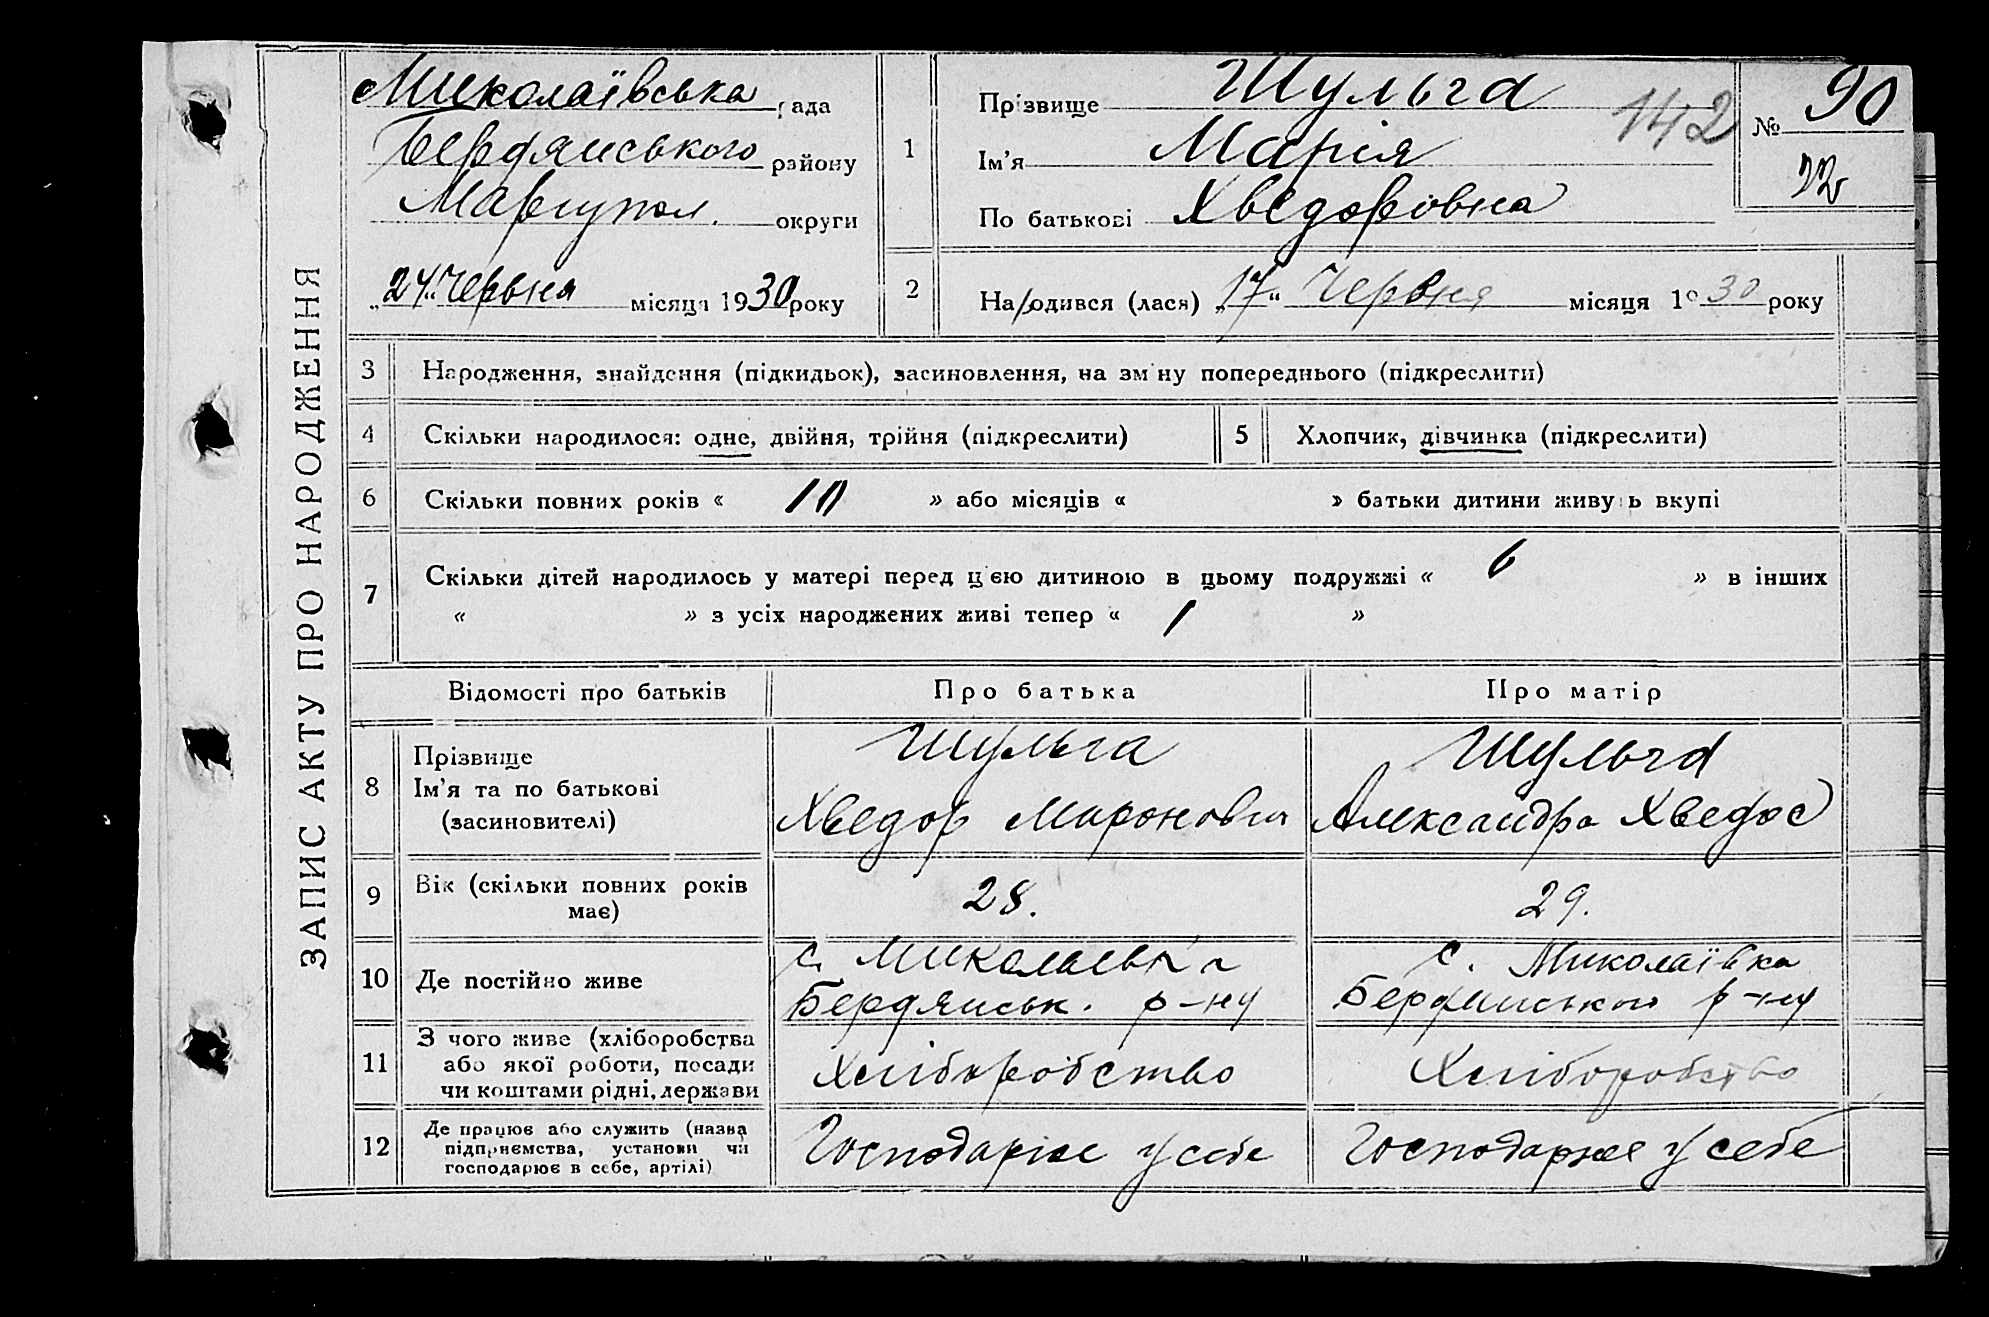 ЗАПИС АКТУ ПРО НАРОДЖЕННЯ
Миколаївська рада
Бердянського району
Маріупол. округи
„24“ Червня місяця 1930 року
1
Прізвище Шульга
Ім’я Марія
По батькові Хведоровна
142
№ 90
22
2
Народився (лася) „17“ Червня місяця 1930 року
3 Народження, знайдення (підкидьок), засиновлення, на зміну попереднього (підкреслити)
4 Скільки народилося: одне, двійня, трійня (підкреслити)
5 Хлопчик, дівчинка (підкреслити)
6 Скільки повних років « 10 » або місяців « » батьки дитини живуть вкупі
7 Скільки дітей народилось у матері перед цією дитиною в цьому подружжі « 6 » в інших
« » з усіх народжених живі тепер « 1 »
Відомості про батьків Про батька Про матір
8 Прізвище
Ім’я та по батькові
(засиновителі)
Шульга
Хведор Миронович
Шульга
Александра Хведос
9 Вік (скільки повних років
має)
28.
29.
10 Де постійно живе
с. Миколаевка
Бердянськ. р-ну
с. Миколаївка
Бердянського р-ну
11 З чого живе (хліборобства
або якої роботи, посади
чи коштами рідні, держави
Хліборобство
Хліборобство
12 Де працює або служить (назва
підприємства, установи чи
господарює в себе, артілі)
Господарює у себе
Господарює у себе